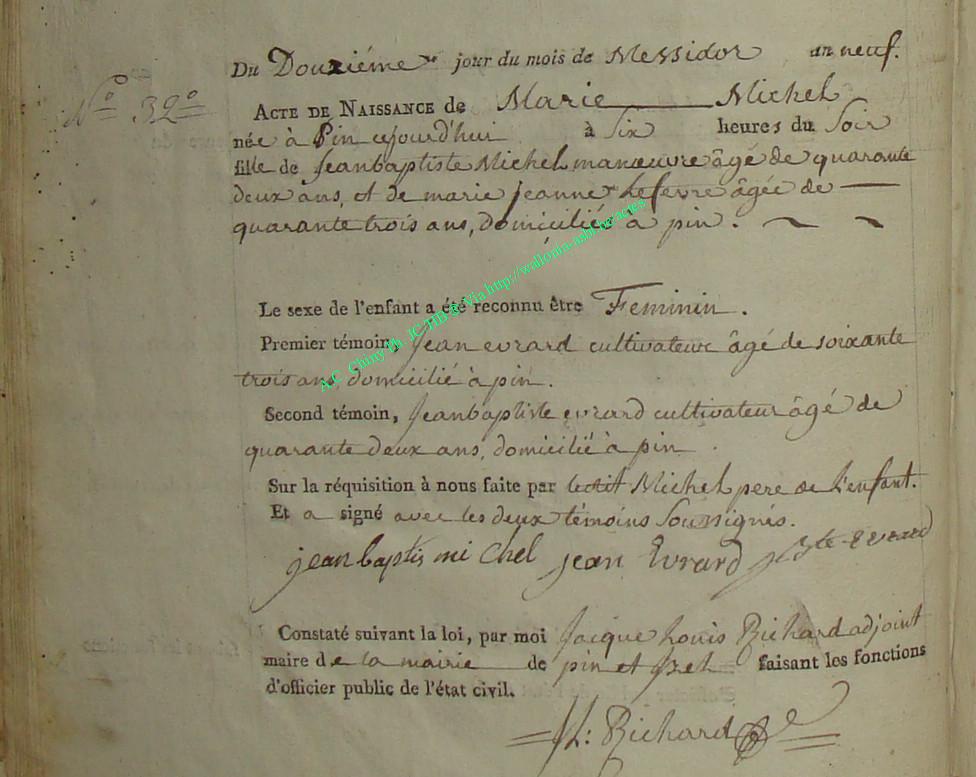 Du Douziéme jour du mois de Messidor an neuf.
N.o 32.o
ACTE DE NAISSANCE de Marie Michel
née à Pin ajourd'hui à Six heures du Soir
fille de Jeanbaptiste Michel manœuvre âgé de quarante
deux ans, et de marie jeanne Lefevre âgée de
quarante trois ans, domiciliés à pin.
Le sexe de l'enfant a été reconnu être Feminin.
Premier témoin, Jean evrard cultivateur âgé de soixante
trois ans, domicilié à pin.
Second témoin, Jeanbaptiste evrard cultivateur âgé de
quarante deux ans, domicilié à pin.
Sur la réquisition à nous faite par ledit Michel pere de l'enfant.
Et a signé avec les deux témoins Soussignés.
jean baptis mi chel jean Evrard j Bte evrard
Constaté suivant la loi, par moi Jacque Louis Richard adjoint
maire de la mairie de pin et Izel faisant les fonctions
d'officier public de l'état civil.
JL: Richard
A.C. Chiny Ph. JC HB & Via http://wallonia-asbl.be/actes